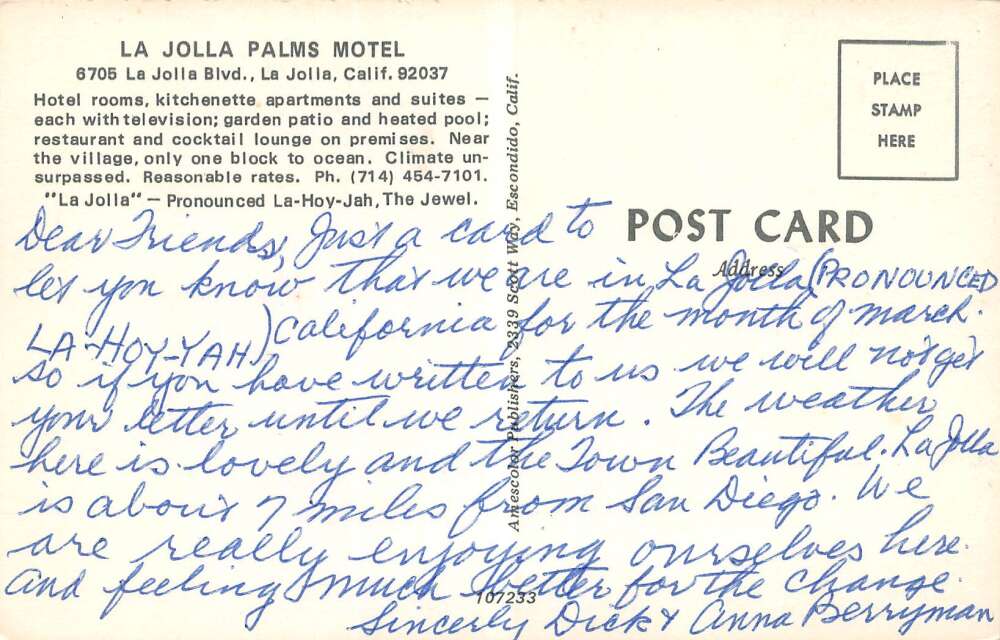 LA JOLLA PALMS MOTEL
6705 La Jolla Blvd., La Jolla, Calif. 92037
Hotel rooms, kitchenette apartments and suites —
each with television; garden patio and heated pool;
restaurant and cocktail lounge on premises. Near
the village, only one block to ocean. Climate un-
surpassed. Reasonable rates. Ph. (714) 454-7101.
"La Jolla" — Pronounced La-Hoy-Jah, The Jewel.
Amescolor Publishers, 2339 Scott Way, Escondido, Calif.
PLACE
STAMP
HERE
POST CARD
Address
Dear Friends, Just a card to
let you know that we are in La Jolla (PRONOUNCED
LA-HOY-YAH) California for the month of march.
so if you have written to us we will not get
your letter until we return. The weather
here is lovely and the Town Beautiful. La Jolla
is about 7 miles from San Diego. We
are really enjoying ourselves here.
and feeling much better for the change.
Sincerly Dick & Anna Berryman
107233